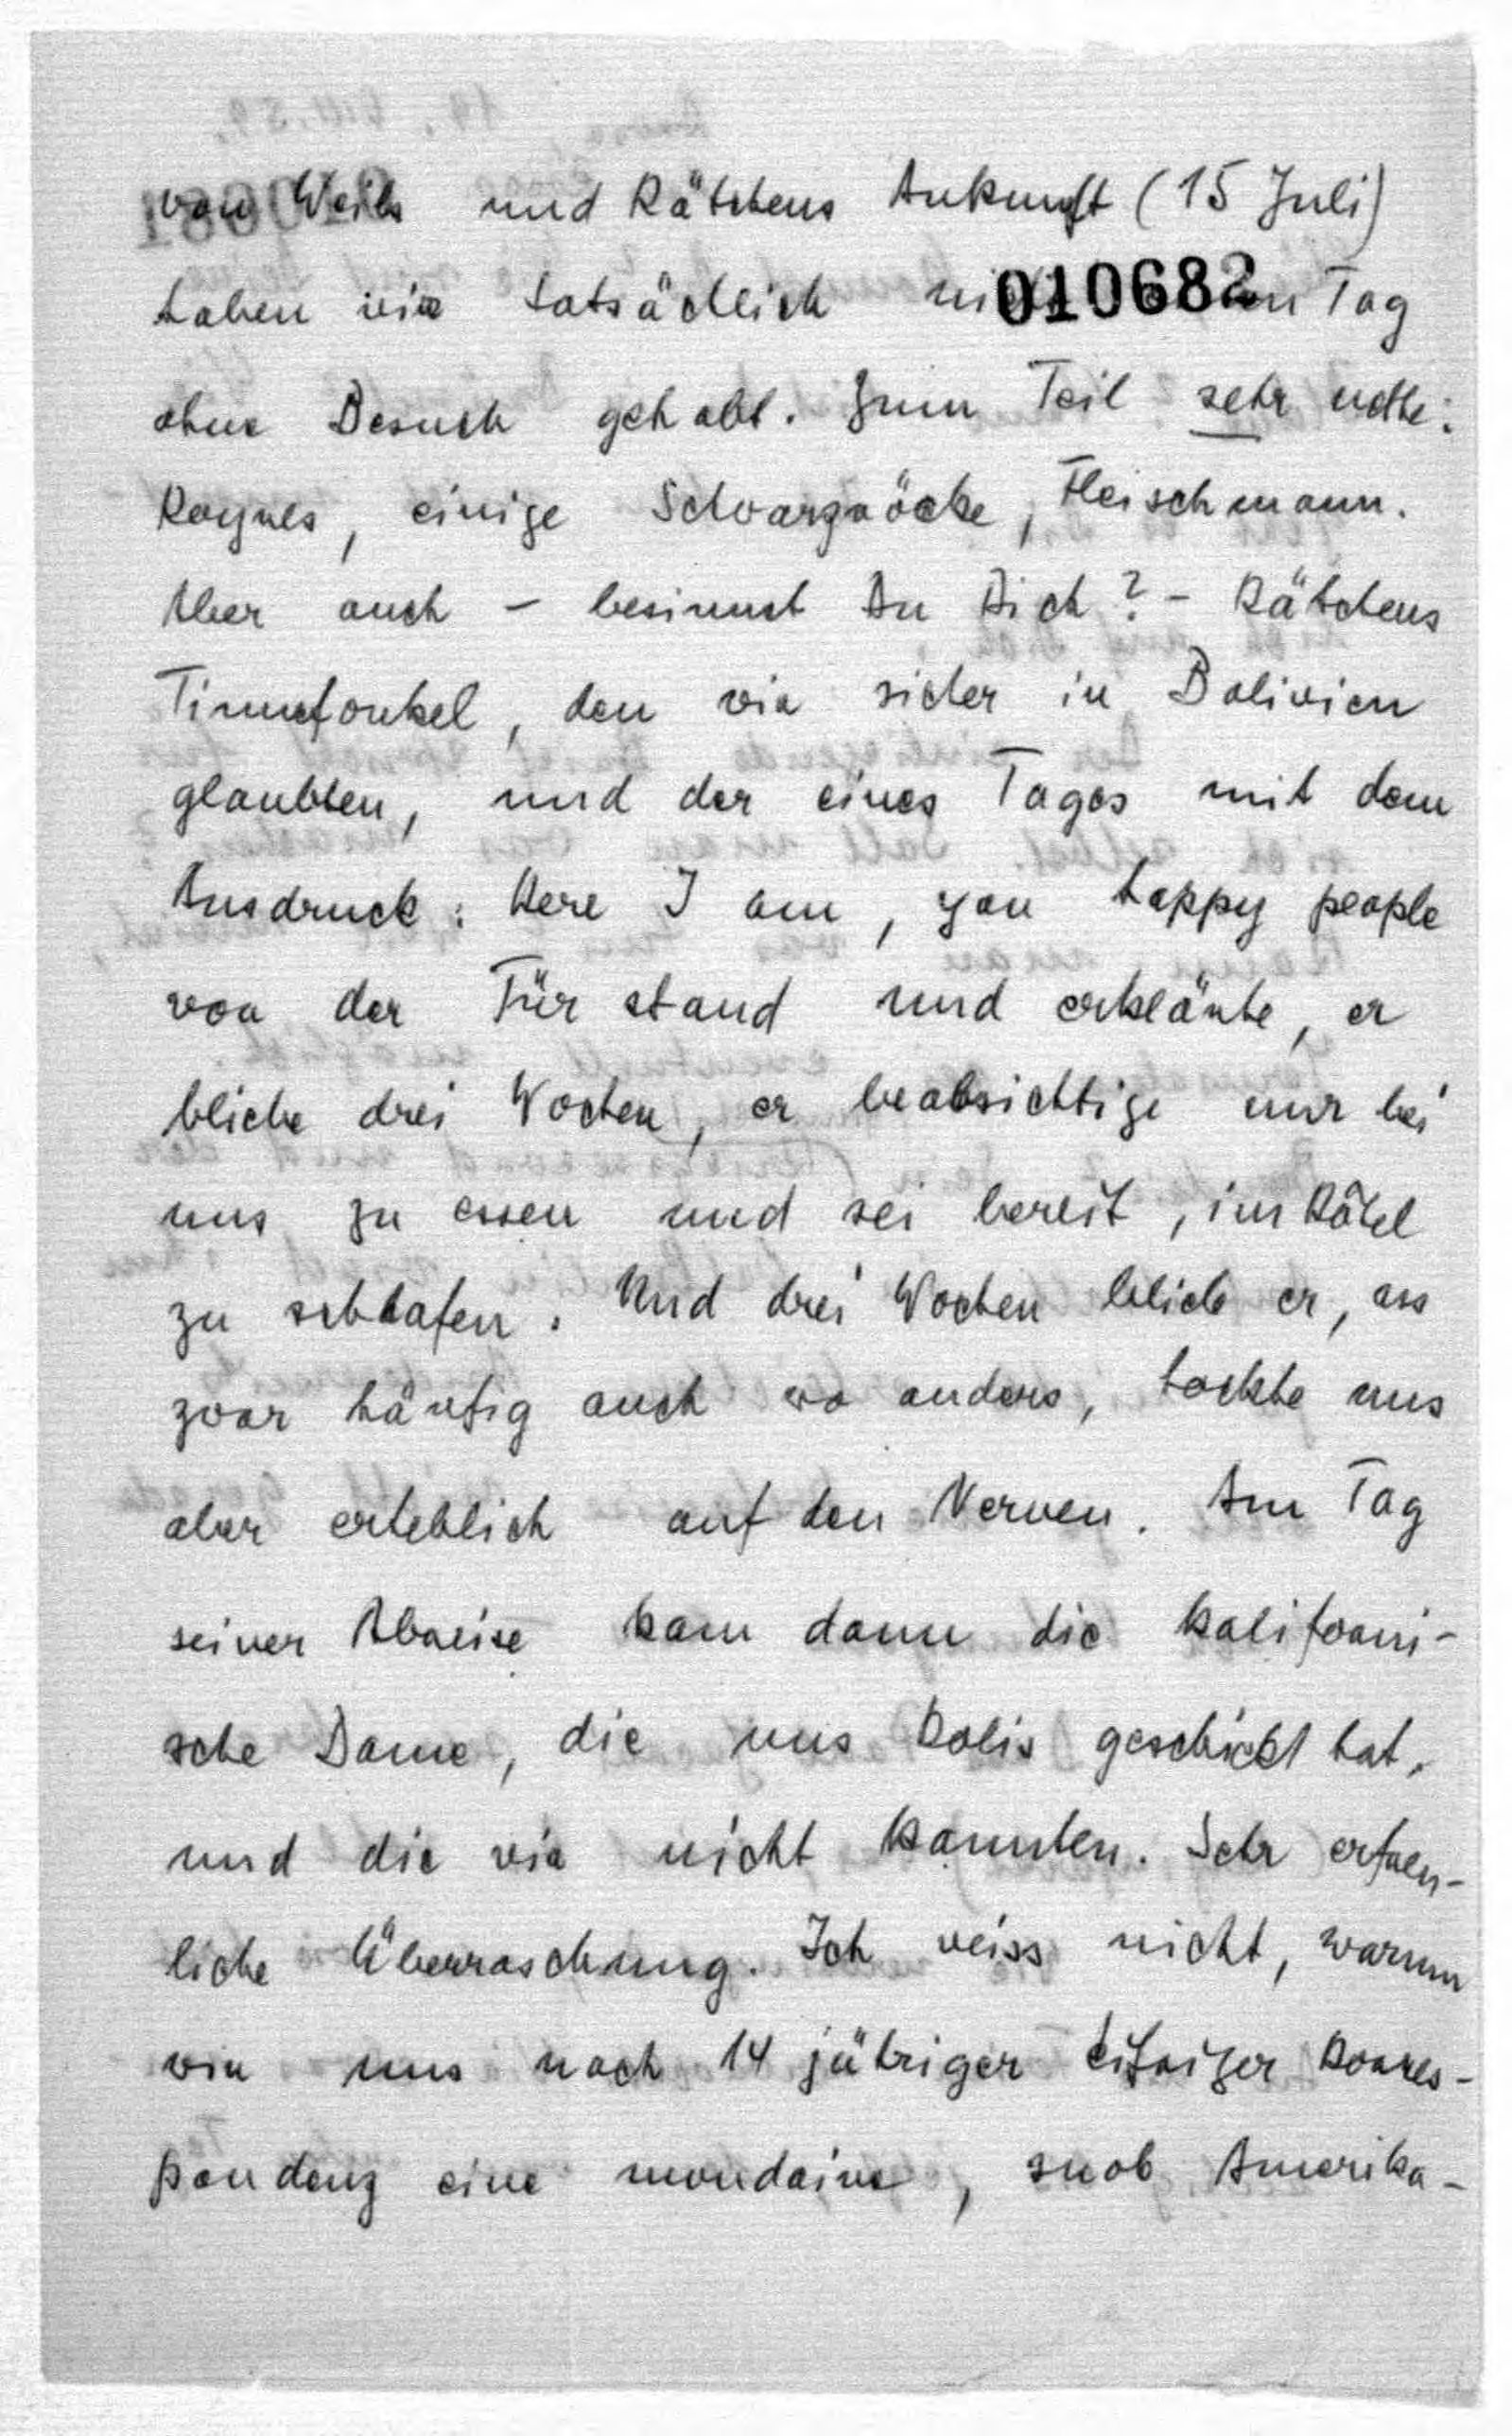 von Weils und Kätchens Ankunft (15 Juli)
haben wir tatsächlich Tag
010682
ohne Besuch gehabt. Zum Teil sehr nette:
einige Schwarzröcke, Fleischmann.
Aber auch – besinnst Du Dich? – Kätchens
Tinnefonkel, den wir sicher in Bolivien
glaubten, und der eines Tages mit dem
Ausdruck: Here I am, you happy people
vor der Tür stand und erklärte, er
bliebe drei Wochen, er beabsichtige nur bei
uns zu essen und sei bereit, im Hôtel
zu schlafen. Und drei Wochen blieb er, ass
zwar häufig auch wo anders, hockte uns
aber erheblich auf den Nerven. Am Tag
seiner Abreise kam dann die kaliforni-
sche Dame, die uns Kolis geschickt hat,
und die wir nicht kannten. Sehr erfreu-
liche Überraschung. Ich weiss nicht, warum
wir uns nach 14 jähriger eifriger Korres-
pondenz eine mondaine, snob Amerika-